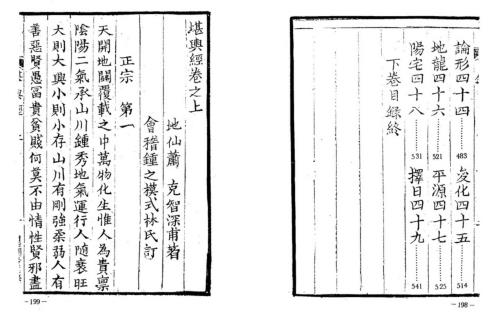 論形四十四……483 变化四十五……514
地龍四十六……521 平源四十七……525
陽宅四十八……531 擇日四十九……541
下卷目錄終
—198—
堪輿經卷之上
地仙蕭 克智深甫著
會稽鍾之模式林氏訂
正宗 第一
天開地闢覆載之中萬物化生惟人為貴稟
陰陽二氣承山川鍾秀地氣運行人隨衰旺
大則大興小則小存山川有剛強柔弱人有
善惡賢愚富貴貧賤何莫不由情性賢邪盡
—199—